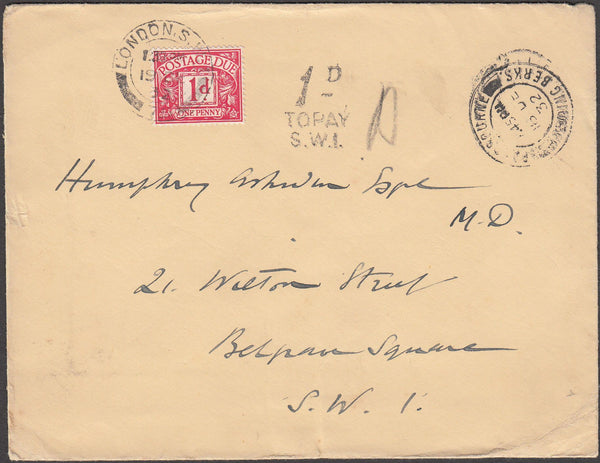 LONDON.S.W.
19
POSTAGE DUE
1d
ONE PENNY
1D
TO PAY
S.W.1.
BOURNE
BERKS.
32
Humphrey Esqre
M.D.
21. Wilton Street
Belgrave Square
S.W.1.